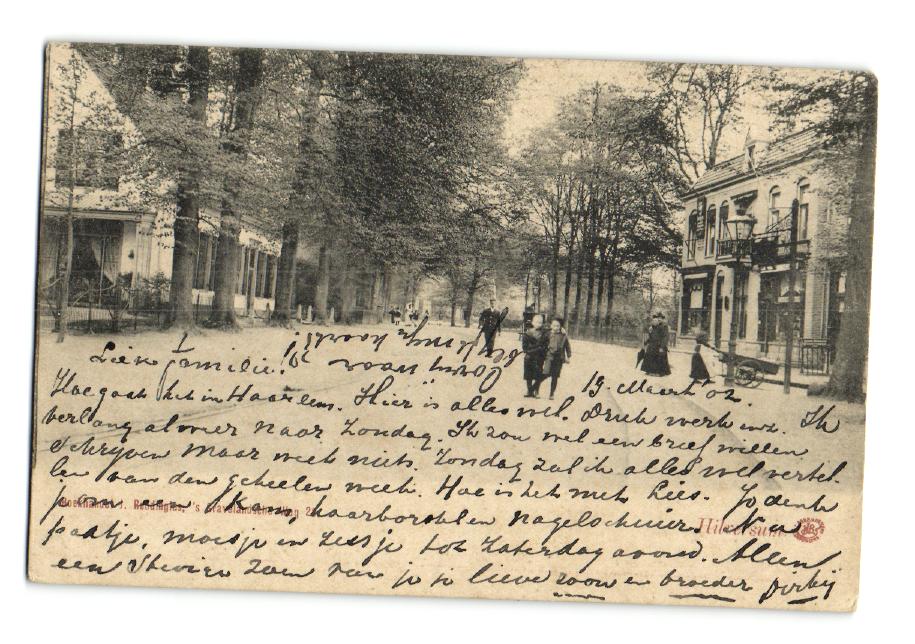 Lieve familie!
19 Maart '02.
Hoe gaat het in Haarlem. Hier is alles wel. Druk werk enz. Ik
verlang alweer naar Zondag. Ik zou wel een brief willen
schrijven maar weet niets. Zondag zal ik alles wel vertel-
len van den geheelen week. Hoe is het met Lies. Jo denk
je om een kam, haarborstel en nagelschuier. Nou
paatje, moesje en zusje tot Zaterdagavond. Allen
een stevige zoen van je je lieve zoon en broeder
Boekhandel J. Reddingius, 's Gravelandsche weg 2
Hilversum